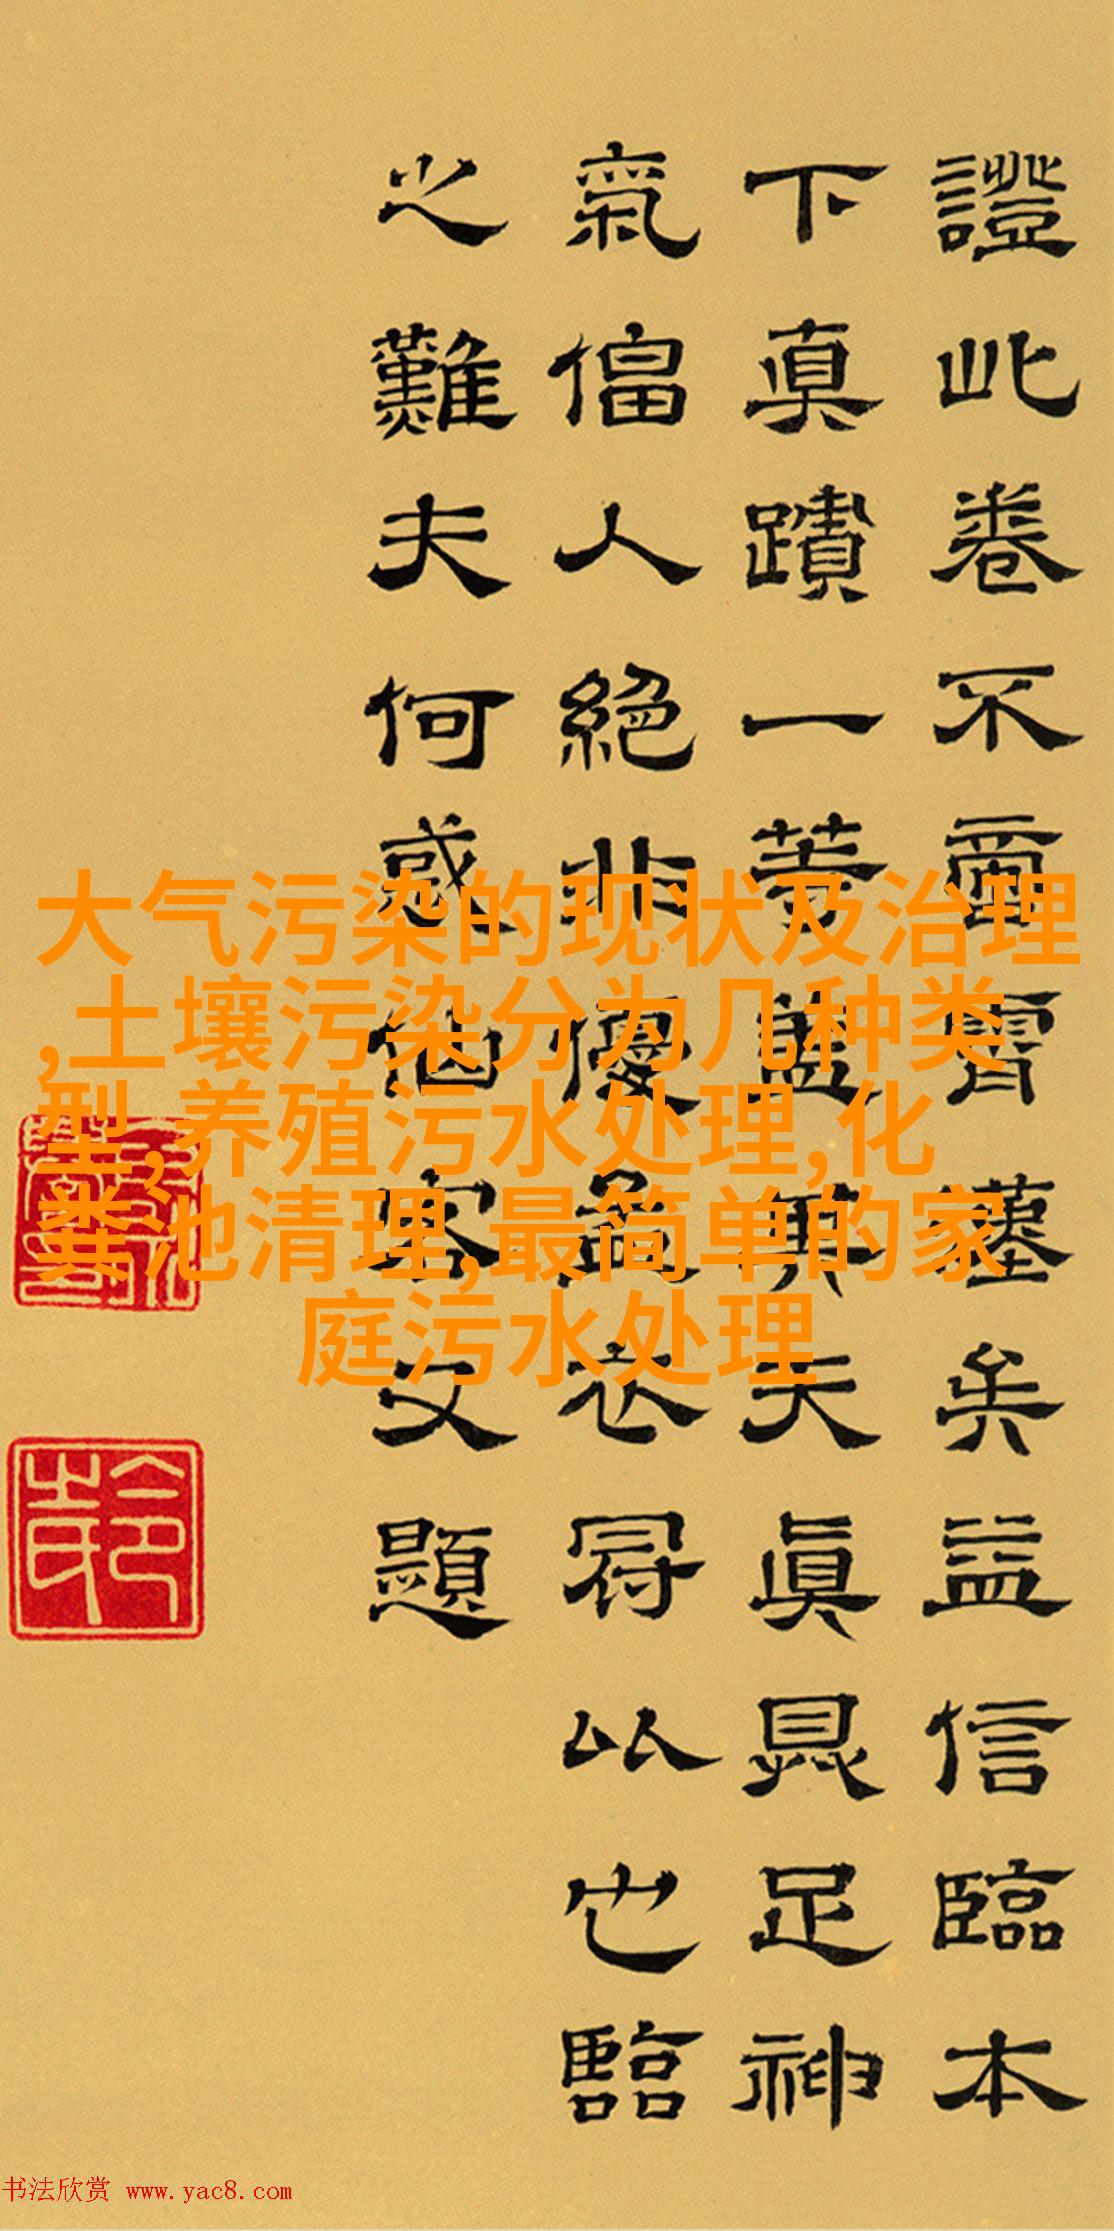 證此卷不啻霄壤矣益信臨本
下真蹟一等葢其天眞具足神
氣偪人絕非優孟衣冠以也臨
之難夫何惑伯客又題
大气污染的现状及治理
,土壤污染分为几种类
型,养殖污水处理,化
粪池清理,最简单的家
庭污水处理
书法欣赏 www.yac8.com